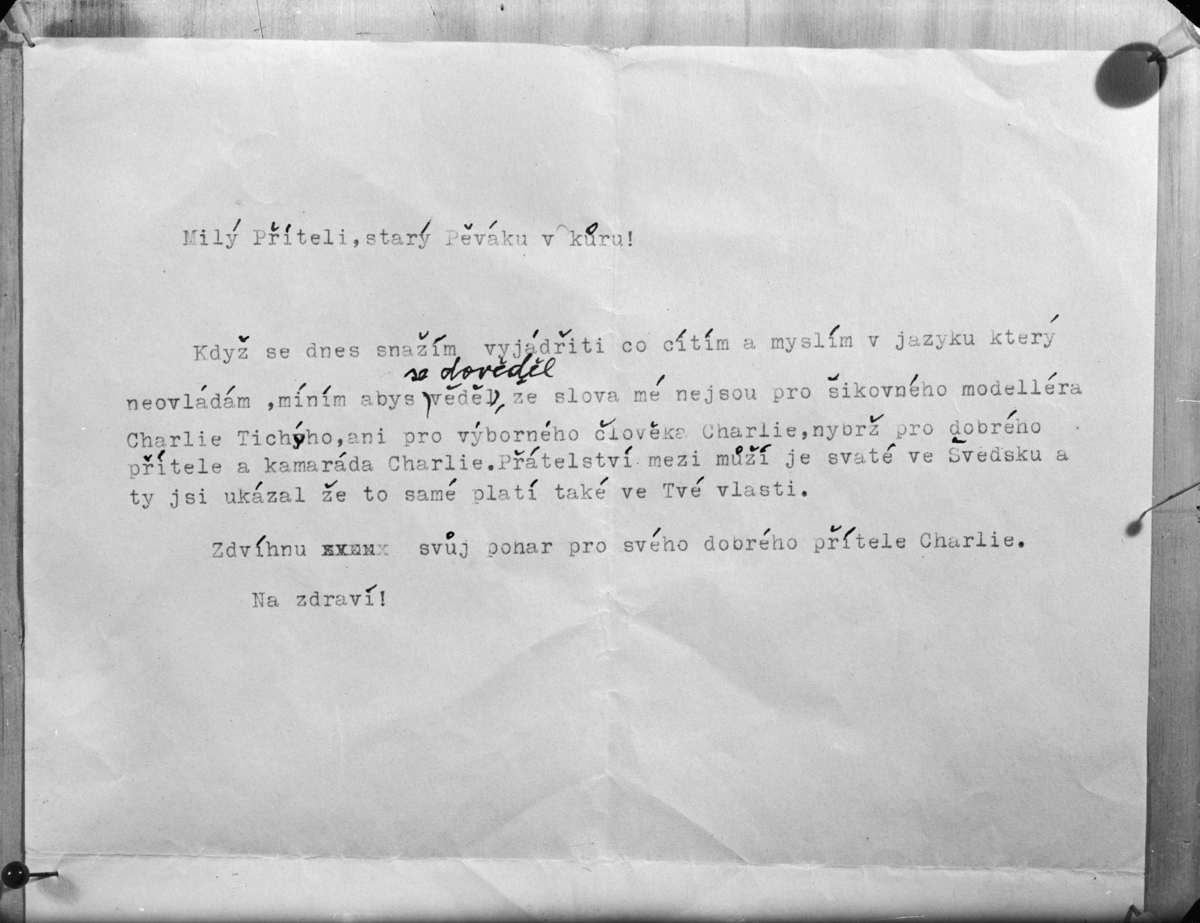 Milý Příteli,starý Pěváku v kůru!
Když se dnes snažím vyjádřiti co cítím a myslím v jazyku který
se dověděl
neovládám ,míním abys věděl, že slova mé nejsou pro šikovného modelléra
Charlie Tichýho,ani pro výborného člověka Charlie,nybrž pro dobrého
přítele a kamaráda Charlie.Přátelství mezi můží je svaté ve Švedsku a
ty jsi ukázal že to samé platí také ve Tvé vlasti.
Zdvíhnu svůj pohar pro svého dobrého přítele Charlie.
Na zdraví!